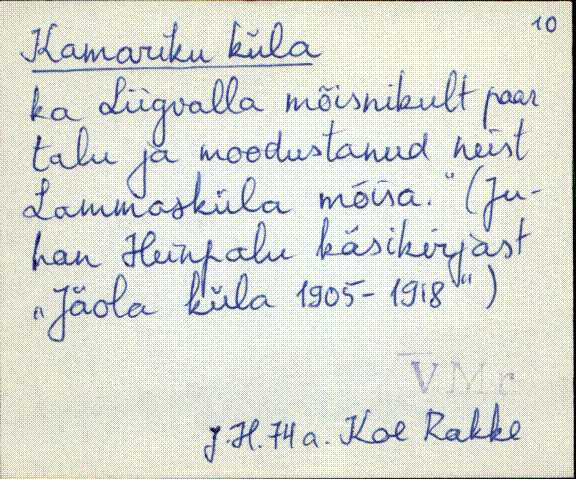 10
Kamariku küla
ka Liigvalla mõisnikult paar
talu ja moodustanud neist
Lammasküla mõisa." (Ju-
han Heinpalu käsikirjast
„Jäola küla 1905-1918")
VMr
J.H. 74 a. Koe Rakke